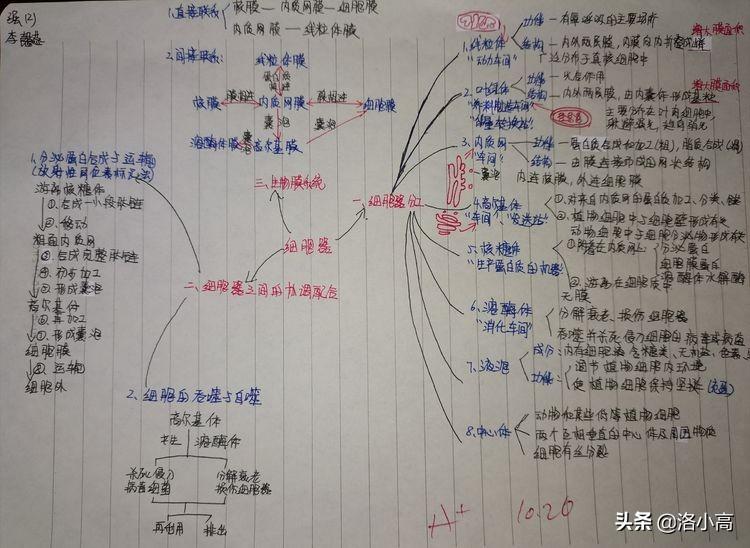 强(2)
1.直接联系
核膜—内质网膜—细胞膜
内质网膜—线粒体膜
2.间接联系:
线粒体膜
核膜
膜相连
内质网膜
膜相连
细胞膜
囊泡
囊泡
溶酶体膜
囊泡
高尔基膜
三、生物膜系统
细胞器
一、细胞器分工
二、细胞器之间的协调配合
1.线粒体
"动力车间"
功能—有氧呼吸的主要场所
增大膜面积
结构—内外两层膜,内膜向内折叠成嵴
2.叶绿体
功能—光合作用
增大膜面积
结构—内外两层膜,由内囊体形成基粒
主要分布在叶肉细胞中
3.内质网
"车间"
功能—蛋白质合成和加工(粗),脂质合成(滑)
结构—由膜连接形成的网状结构
囊泡
内连核膜,外连细胞膜
4.高尔基体
"车间"、"发送站"
①.对来自内质网的蛋白质加工、分类、包装
②.植物细胞中与细胞壁形成有关
动物细胞中与细胞分泌物形成有关
5.核糖体
"生产蛋白质的机器"
①附着在内质网上
分泌蛋白
细胞膜蛋白
溶酶体水解酶
②.游离在细胞质中
无膜
6.溶酶体
"消化车间"
分解衰老、损伤细胞器
吞噬并杀死侵入细胞的病毒或病菌
7.液泡
成分:内有细胞液,含糖类、无机盐、色素、
功能:
调节植物细胞内环境
使植物细胞保持坚挺
8.中心体
动物和某些低等植物细胞
两个互相垂直的中心体及周围物质
细胞有丝分裂
1.分泌蛋白合成与运输
(放射性同位素标记法)
游离核糖体
①.合成一小段肽链
②.移动
粗面内质网
①.合成完整肽链
②.初步加工
③.形成囊泡
高尔基体
①.再加工
②.形成囊泡
细胞膜
①.运输
细胞外
2.细胞自吞噬与自噬
高尔基体
产生
溶酶体
杀死侵入
病毒细菌
分解衰老
损伤细胞器
再利用
排出
A+
10.20
头条 @洛小高